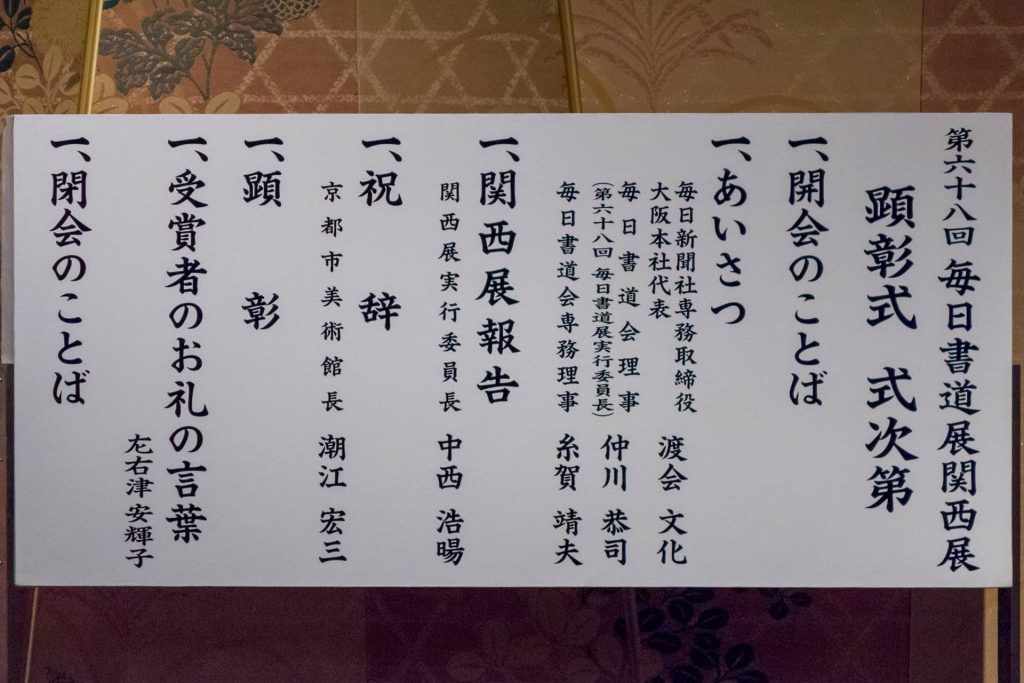 第六十八回 毎日書道展関西展
顕彰式 式次第
一、開会のことば
一、あいさつ
毎日新聞社専務取締役
大阪本社代表 渡会 文化
毎日書道会理事
(第六十八回 毎日書道展実行委員長) 仲川 恭司
毎日書道会専務理事 糸賀 靖夫
一、関西展報告
関西展実行委員長 中西 浩暘
一、祝 辞
京都市美術館長 潮江 宏三
一、顕 彰
一、受賞者のお礼の言葉
左右津 安輝子
一、閉会のことば